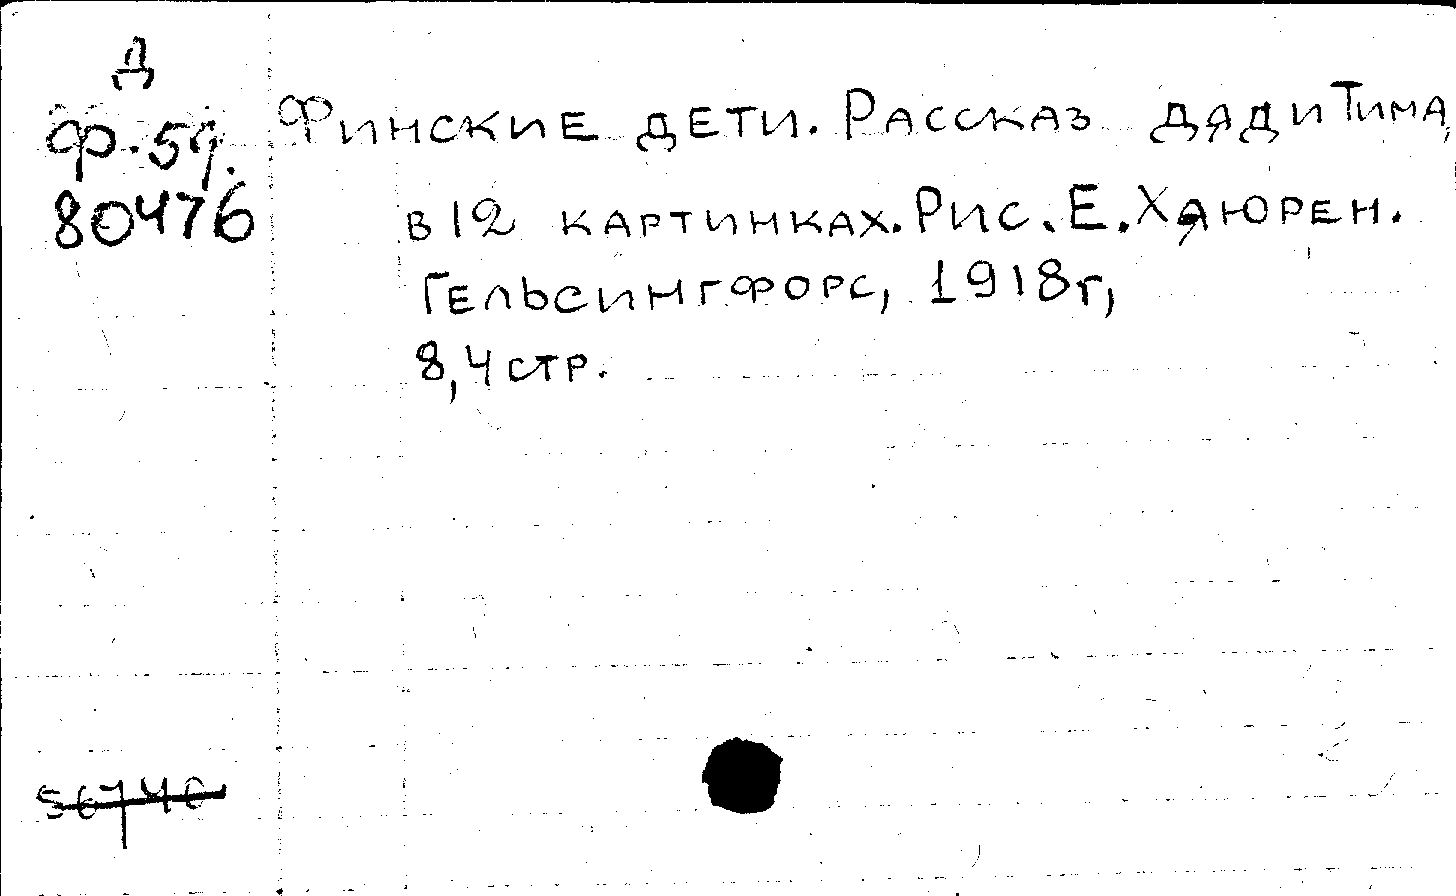 Д
Ф.59.
80476
Финские дети. Рассказ дяди Тима,
в 12 картинках. Рис. Е. Хяюрен.
Гельсингфорс, 1918г,
8,4 стр.